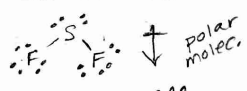 S
F F
polar
molec.